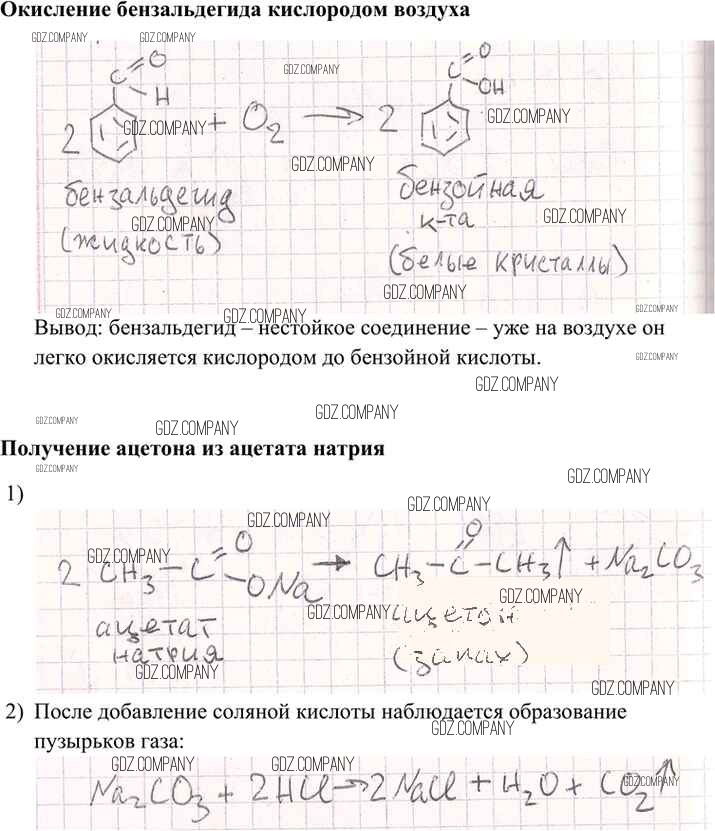 Окисление бензальдегида кислородом воздуха
GDZ.COMPANY GDZ.COMPANY
GDZ.COMPANY
C O H
C O OH
2 GDZ.COMPANY + O2 → 2 GDZ.COMPANY
GDZ.COMPANY
бензальдегид бензойная
GDZ.COMPANY к-та GDZ.COMPANY
(жидкость) (белые кристаллы)
GDZ.COMPANY GDZ.COMPANY GDZ.COMPANY GDZ.COMPANY
Вывод: бензальдегид – нестойкое соединение – уже на воздухе он
легко окисляется кислородом до бензойной кислоты. GDZ.COMPANY
GDZ.COMPANY
GDZ.COMPANY GDZ.COMPANY GDZ.COMPANY
Получение ацетона из ацетата натрия
GDZ.COMPANY GDZ.COMPANY
1)
GDZ.COMPANY
GDZ.COMPANY
O O
GDZ.COMPANY
2 CH3 – C ONa → CH3 – C – CH3↑ + Na2CO3
GDZ.COMPANY
GDZ.COMPANY
ацетат ацетон
натрия (запах)
GDZ.COMPANY GDZ.COMPANY
2) После добавление соляной кислоты наблюдается образование
пузырьков газа: GDZ.COMPANY
GDZ.COMPANY GDZ.COMPANY
Na2CO3 + 2HCl → 2NaCl + H2O + CO2↑
GDZ.COMPANY
GDZ.COMPANY